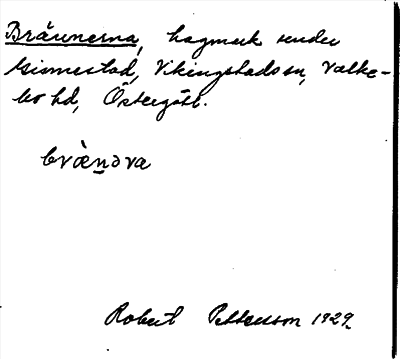 Brännerna, hagmark under
Gismestad, Vikingstads sn, Valke-
bo hd, Östergötl.
bræ̀n̲əra
Robert Pettersson 1929.